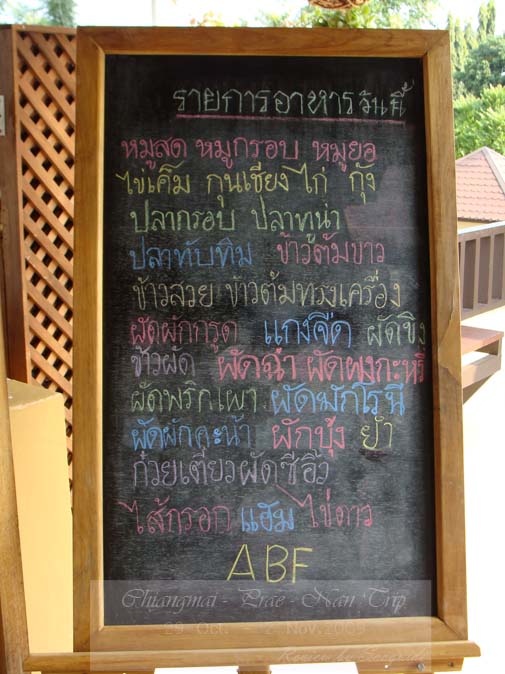 รายการอาหารวันนี้
หมูสด หมูกรอบ หมูยอ
ไข่เค็ม กุนเชียง ไก่ กุ้ง
ปลากรอบ ปลาทูน่า
ปลาทับทิม ข้าวต้มขาว
ข้าวสวย ข้าวต้มทรงเครื่อง
ผัดผักกรูด แกงจืด ผัดขิง
ข้าวผัด ผัดฉ่า ผัดผงกะหรี่
ผัดพริกเผา ผัดมักโรนี
ผัดผักคะน้า ผักบุ้ง ยำ
ก๋วยเตี๋ยวผัดซีอิ๊ว
ไส้กรอก แฮม ไข่ดาว
ABF
Chiangmai - Prae - Nan Trip
29 Oct. - 2 Nov.
Review by